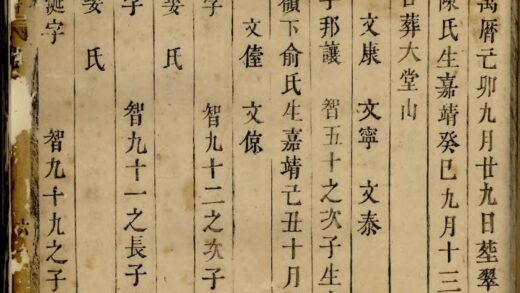 萬曆己卯九月廿九日塟翠
陳氏生嘉靖癸巳九月十三
葬大堂山
文康 文寧 文泰
字邦讓 智五十之次子生
嶺下俞氏生嘉靖己丑十月
文 文倞
字 智九十二之次子
娶 氏
字 智九十一之長子
娶 氏
字 智九十九之子